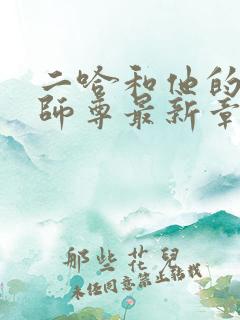 二哈和他的
師尊最新章
那些花兒
未经同意禁止转载